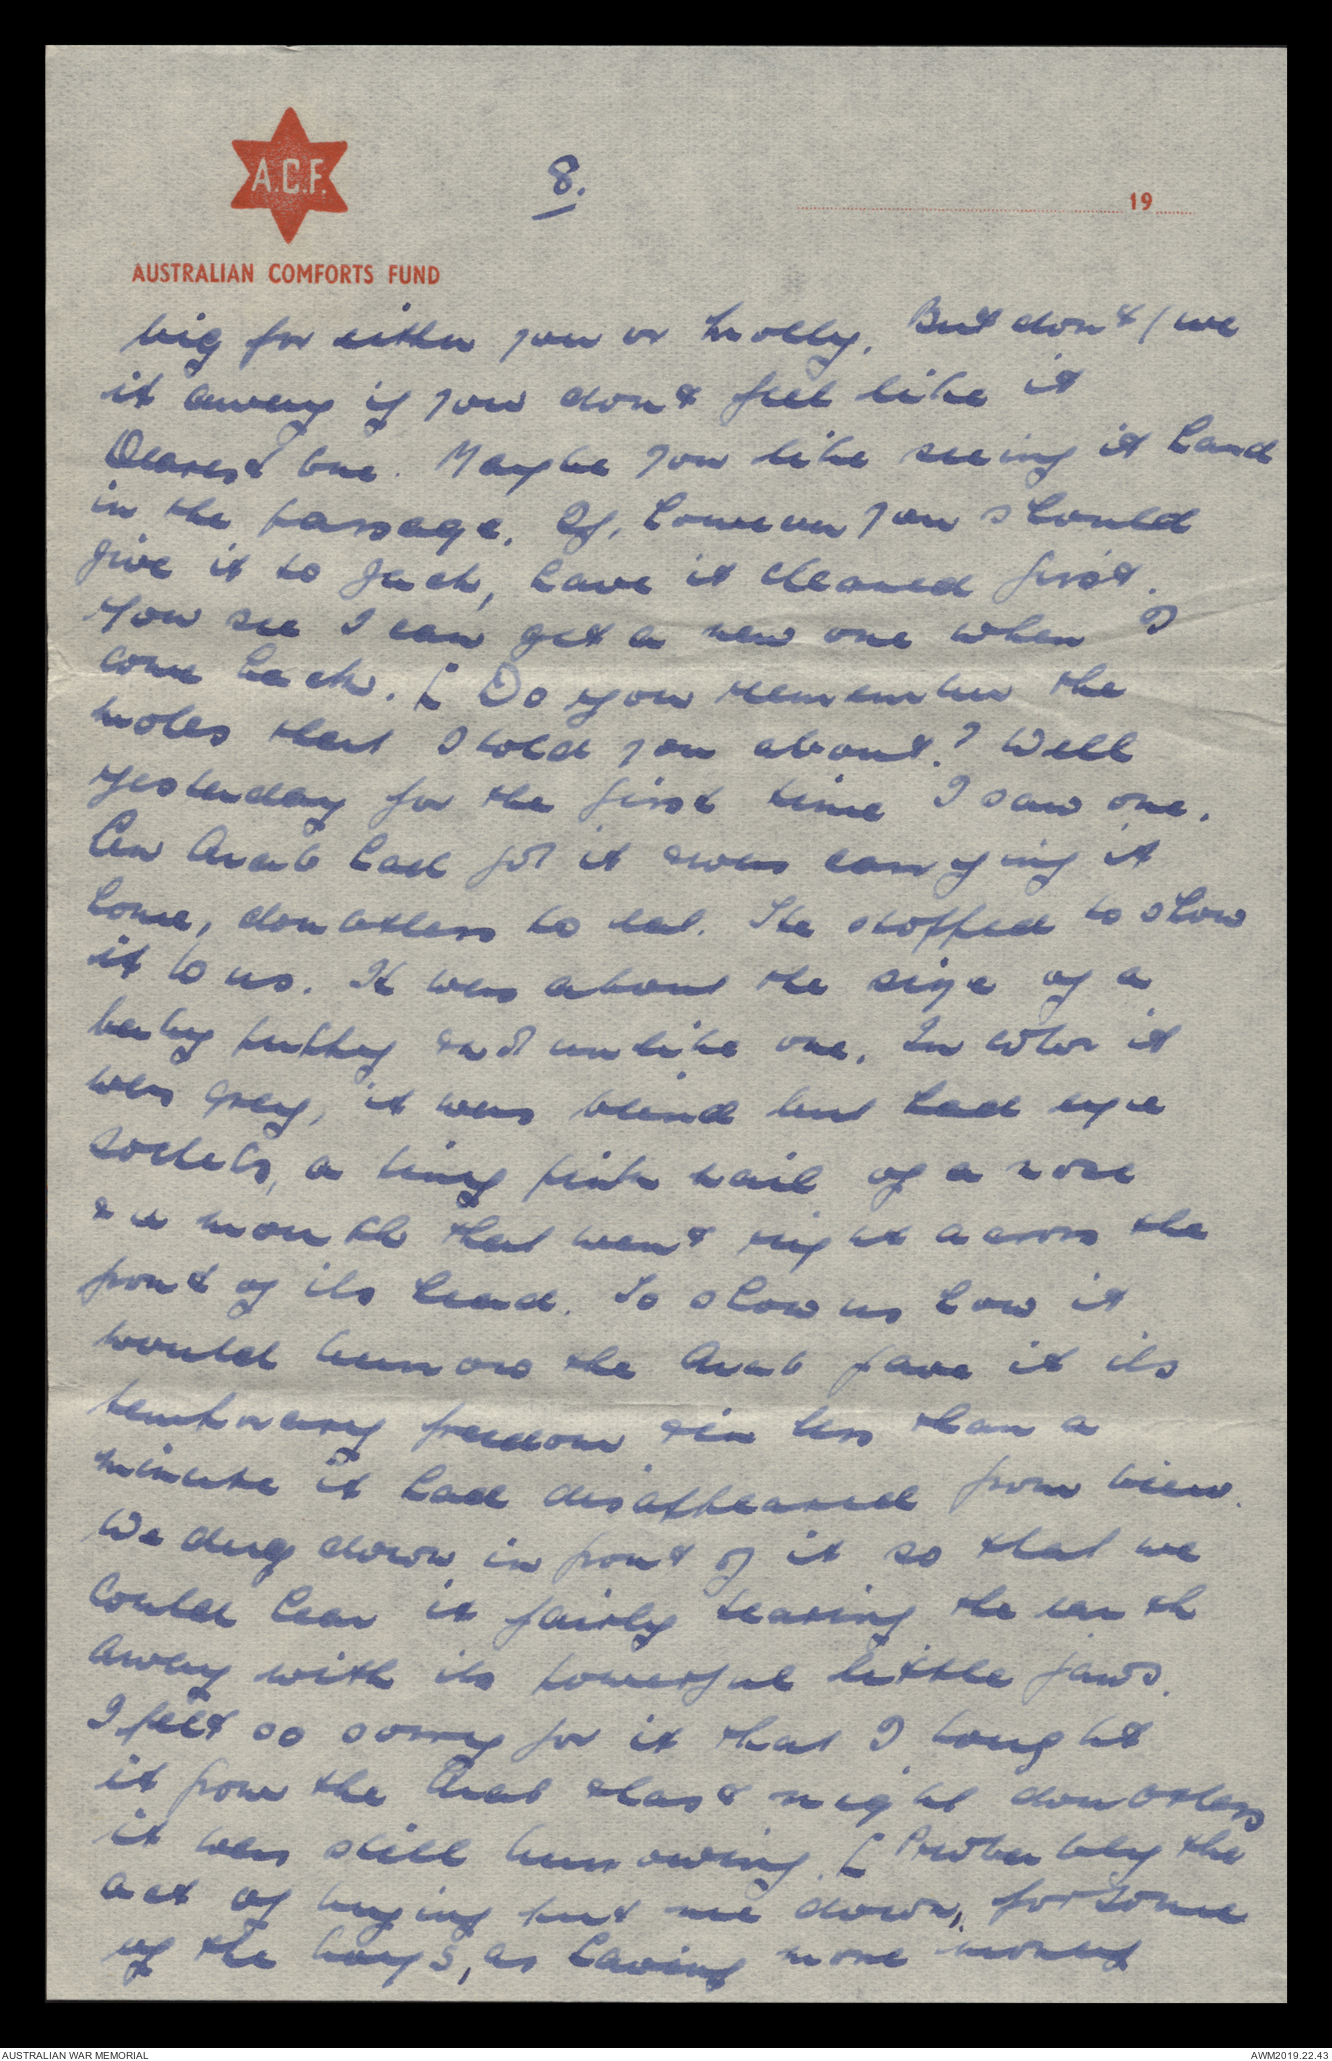 A.C.F.
8.
19
AUSTRALIAN COMFORTS FUND
big for either you or Molly. But don't give
it away if you don't feel like it
Dearest one. Maybe you like seeing it hand
in the passage. If, however you should
give it to Jack, have it cleaned first.
You see I can get a new one when I
come back. [ Do you remember the
moles that I told you about? Well
yesterday for the first time I saw one.
An Arab had got it & was carrying it
home, doubtless to eat. He stopped to show
it to us. It was about the size of a
baby puppy & not unlike one. In color it
was grey, it was blind but had eye
sockets, a tiny pink nail of a nose
& a mouth that went right across the
front of its head. To show us how it
would burrow the Arab gave it its
temporary freedom & in less than a
minute it had disappeared from view.
We dug down in front of it so that we
could hear it fairly tearing the earth
away with its powerful little jaws.
I felt so sorry for it that I bought
it from the Arab & last night doubtless
it was still burrowing. [ Probably the
act of buying put me down, for some
of the boys, as having more money
AUSTRALIAN WAR MEMORIAL
AWM2019.22.43